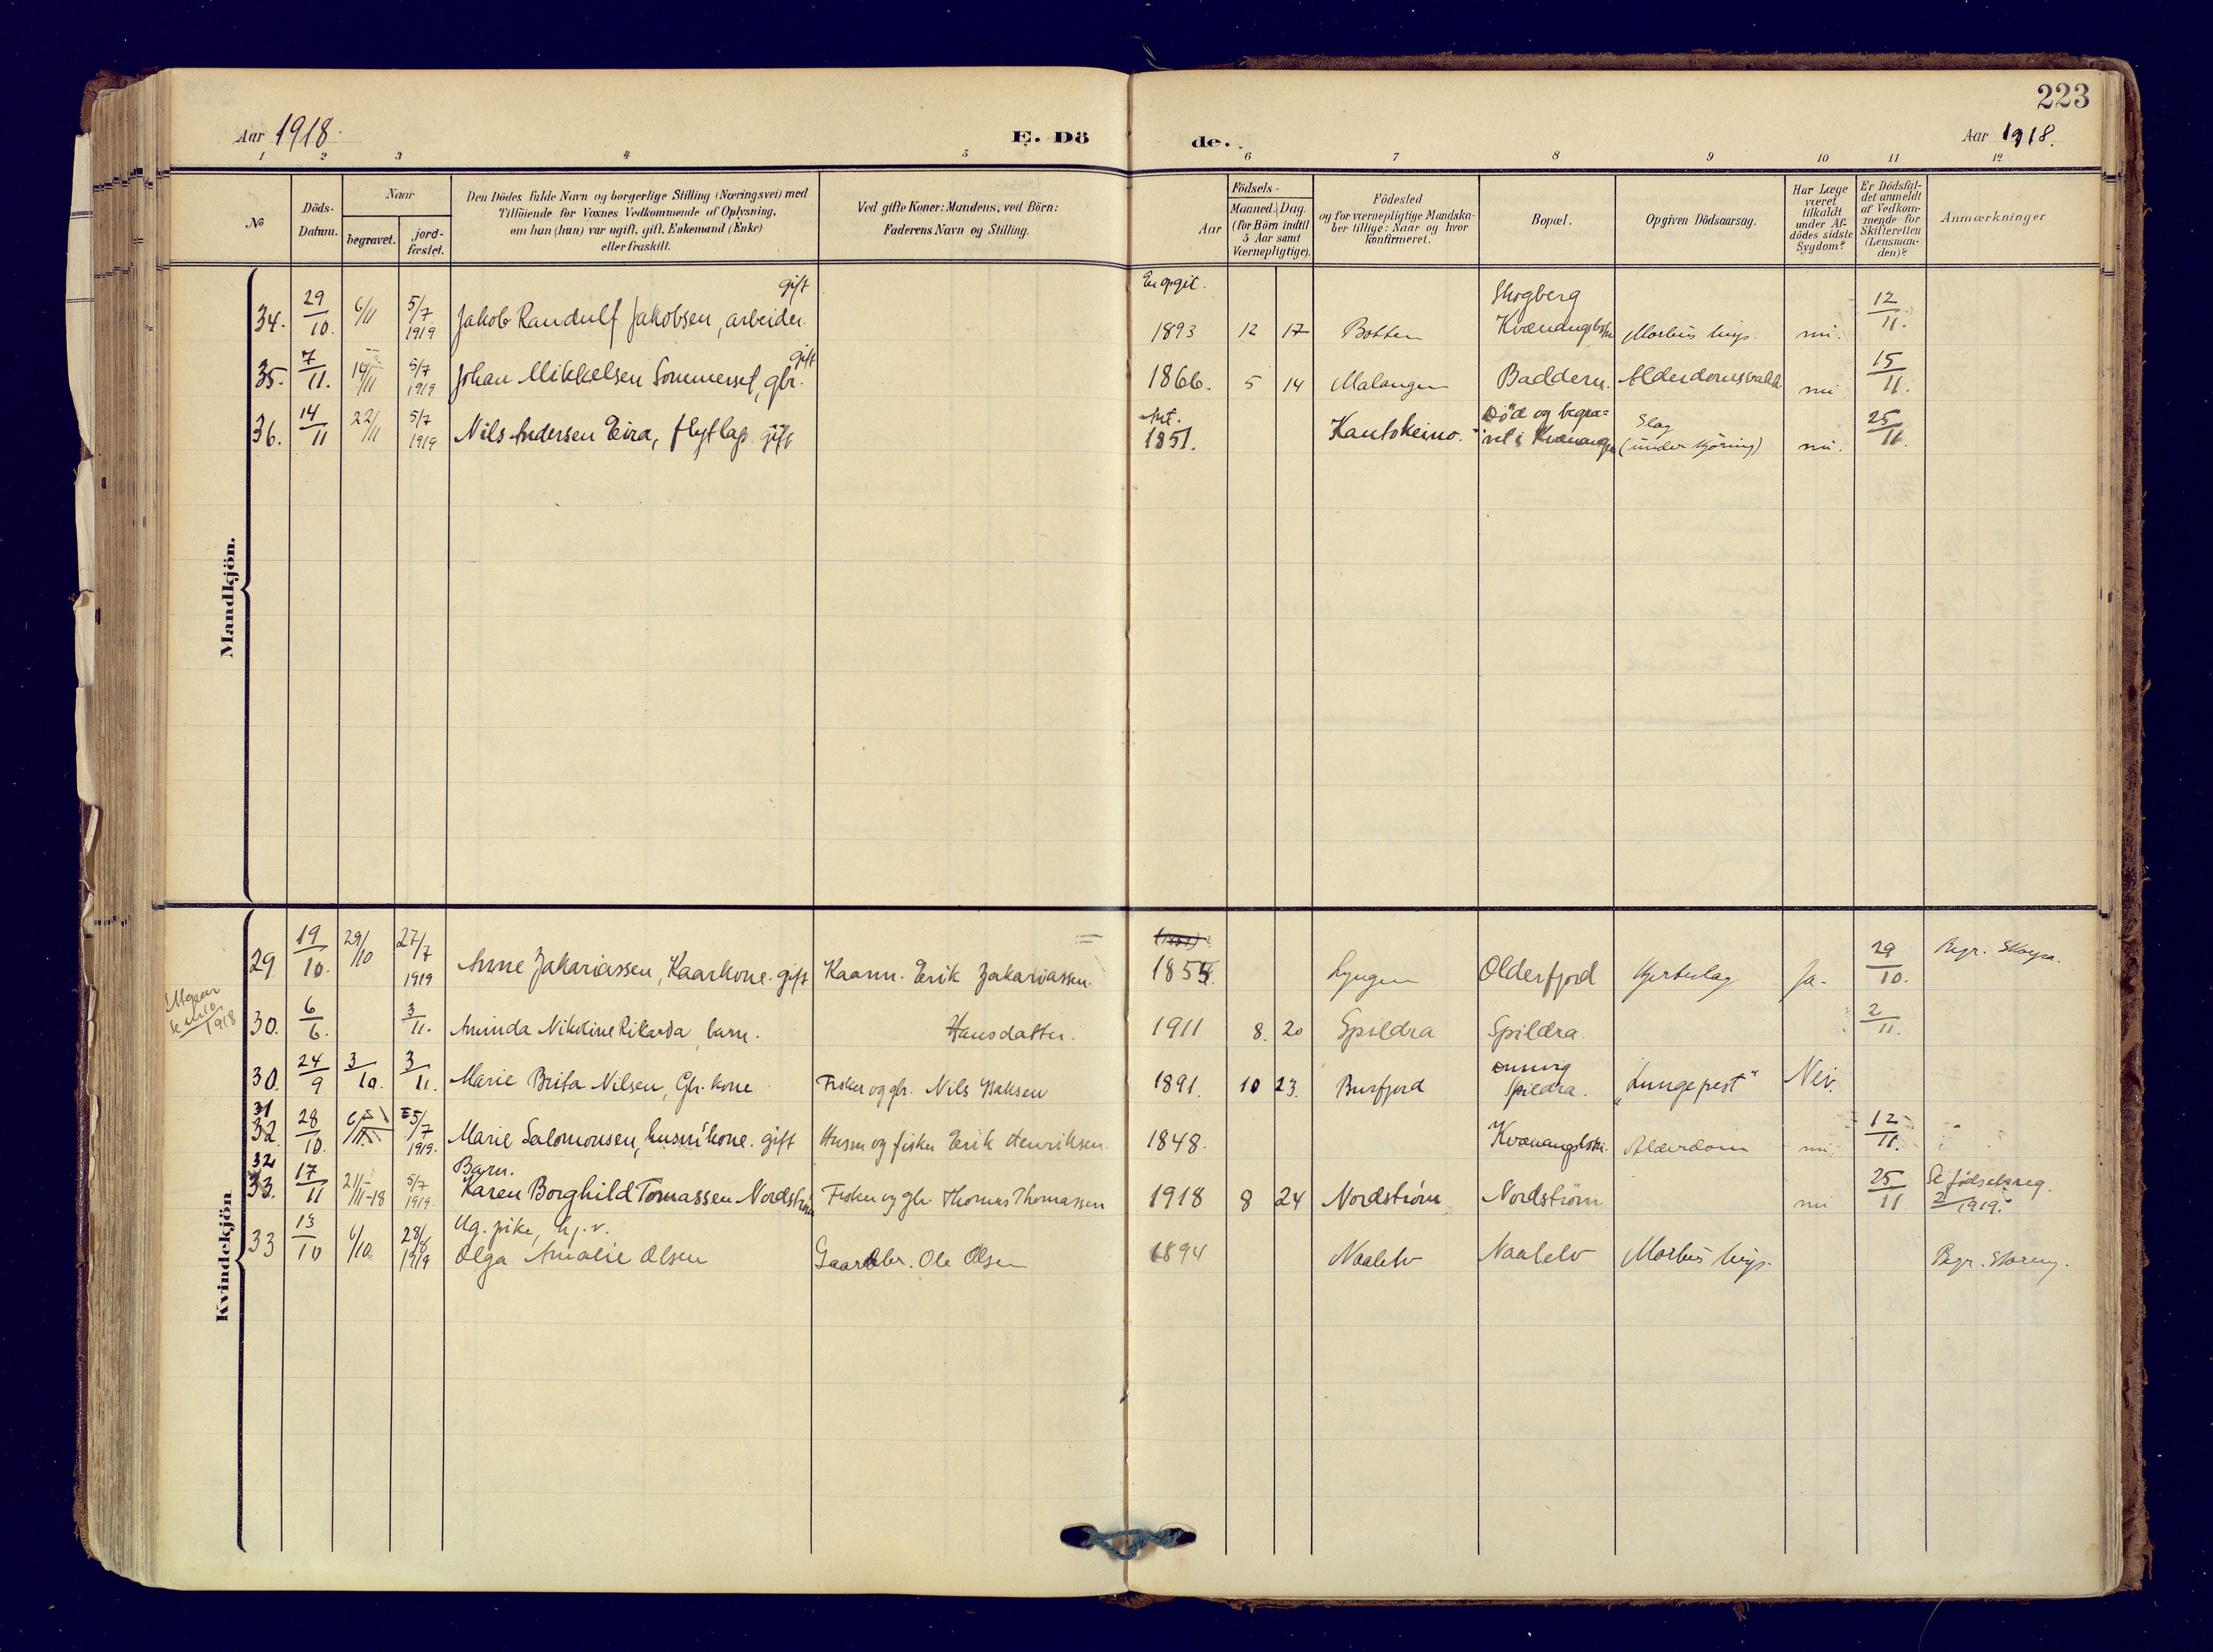 223
Aar 1918.
E. Dö de.
Aar 1918.
1 2 3 4 5 6 7 8 9 10 11 12
No
Döds-Datum.
Naar
begravet.
jord-fæstet.
Den Dödes fulde Navn og borgerlige Stilling (Næringsvei) med
Tilföiende for Voxnes Vedkommende af Oplysning,
om han (hun) var ugift, gift, Enkemand (Enke)
eller fraskilt.
Ved gifte Koner: Mandens, ved Börn:
Faderens Navn og Stilling.
Födsels-
Aar
Maaned. Dag.
(for Börn indtil
5 Aar samt
Værnepligtige).
Födested
og for værnepligtige Mandska-
ber tillige: Naar og hvor
konfirmeret.
Bopæl.
Opgiven Dödsaarsag.
Har Læge
været
tilkaldt
under Af-
dödes sidste
Sygdom?
Er Dödsfal-
det anmeldt
af Vedkom-
mende for
Skifteretten
(Lensman-
den)?
Anmærkninger
Mandkjön.
gift
34. 29/10. 6/11 5/7 1919 Jakob Randulf Jakobsen, arbeider. 1893 12 17 Botten Skogberg Morbus 12/11.
gift
35. 7/11. 14/11 5/7 1919 Johan Mikkelsen Sommerset, gbr. 1866. 5 14 Malangen Badderen. 15/11.
36. 14/11 22/11 5/7 1919 Nils Andersen Eira, flytlap gift Ant. 1851. Kautokeino. Död og begra=
vet i Kvænangen Slag
(under Kjöring) 25/11.
Kvindekjön
29 19/10. 29/10 27/7 1919 Anne Zakariassen, Kaarkone. gift Kaarm. Erik Zakariassen. Lyngen Olderfjord Hjerteslag Ja. 29/10. Begr.
Utgaar
se
1918
30. 6/6. 3/11. Aminda Nikoline Rikarda, barn. Hansdatter. 1911 8. 20 Spildra Spildra. 2/11.
30. 24/9 3/10. 3/11. Marie Brita Nilsen, Gbr. kone Fisker og gbr. Nils Isaksen 1891. 10 23. Burfjord
Spildra. "Lungepest" Nei.
31
32. 28/10. 6/11 5/7 1919. Marie Salomonsen, husm. kone. gift Husm og fisker Erik Henriksen. 1848. Alderdom 12/11.
32
33. 17/11 21/11-18 5/7 1919. Barn.
Karen Borghild Tomassen Nordström Fisker og gbr. Thomas Thomassen 1918 8 24 Nordström Nordström 25/11 Se födselsreg.
2/1919.
33 13/10 6/10. 28/8 1919 Ug. pike, hj. v.
Olga Amalie Olsen Gaardbr. Ole Olsen 1894 Naalelv Naalelv Morbus Begr.